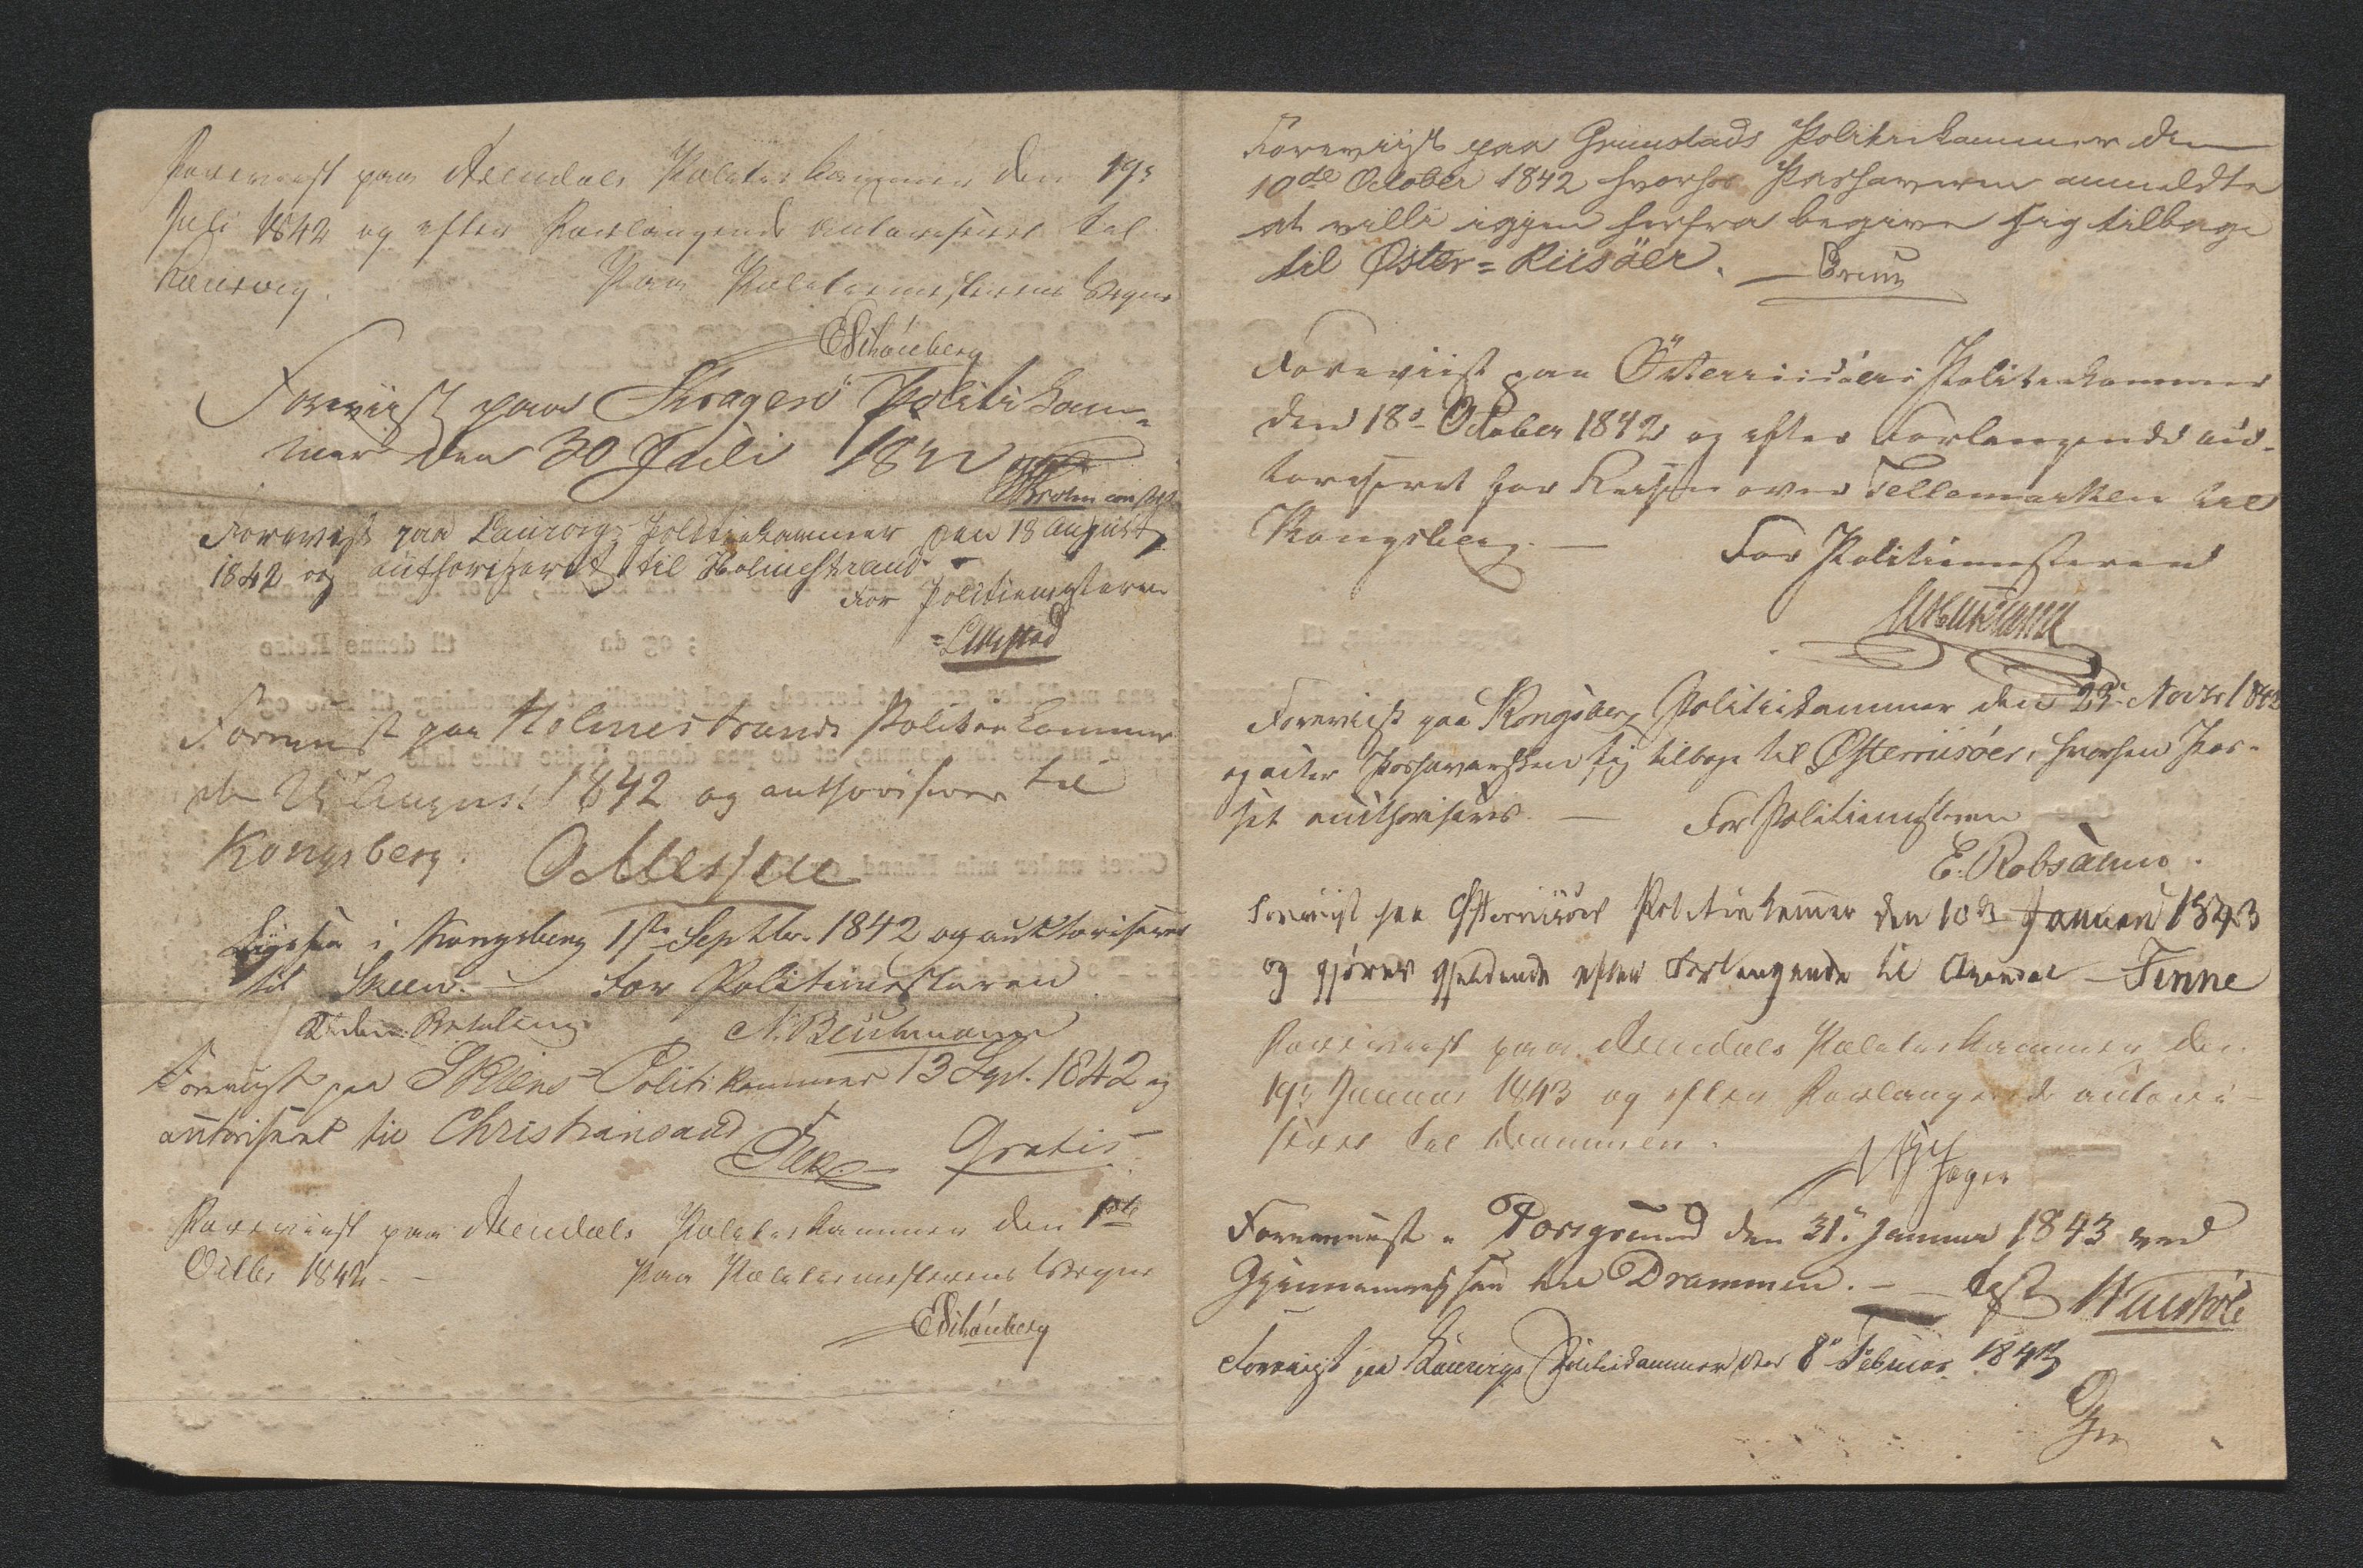 Foreviist paa Arendals Politiekammer den 19s
Juli 1842 og efter Forlangende autoriseret til
Laurvig. Paa Politiemesterens Vegne
ESchönberg
Foreviist paa Kragerö Politikam-
mer den 30 Juli 1842
const
Foreviist paa Laurvigs Politiekammer den 18 August
1842 og authoriseret til Holmestrand.
For Politiemesteren
Foreviist paa Holmestrands Politiekammer
den August 1842 og authoriseres til
Kongsberg.
i Kongsberg 1ste Septbr. 1842 og authoriseret
til Skien. – For Politimesteren
Uden Betaling
Foreviist paa Skiens Politikammer 13 Sept. 1842 og
autoriseret til Christiansand
Gratis
Foreviist paa Arendals Politiekammer den 1ste
Octbr 1842. – Paa Politiemesterens Vegne
ESchönberg
Foreviist paa Grimstads Politiekammer den
10de October 1842 hvorhos Passhaveren anmeldte
at ville igjen herfra begive sig tilbage
til Øster=Riisöer.
Foreviist paa Österriisöers Politiekammer
den 18s October 1842 og efter Forlangende au-
toriseret for Reisen over Tellemarken til
Kongsberg. — For Politiemesteren
Foreviist paa Kongsberg Politiekammer den 23s Novbr 1842
og agter Passhaversken sig tilbage til Østerriisöer, hvorhen Pas-
set authoriseres. — For Politiemesteren
E. Robsahm.
Foreviist paa Østerriisöers Politiekammer den 10de Januar 1843
og gjöres gjeldende efter Forlangende til Arendal – Finne
Foreviist paa Arendals Politiekammer den
19s Januar 1843 og efter Forlangende autori-
seres til Drammen.
Foreviist i Porsgrund den 31s Januar 1843 ved
Gjennemreise til Drammen. –
Foreviist paa Laurvigs Politiekammer den 8s Februar 1843